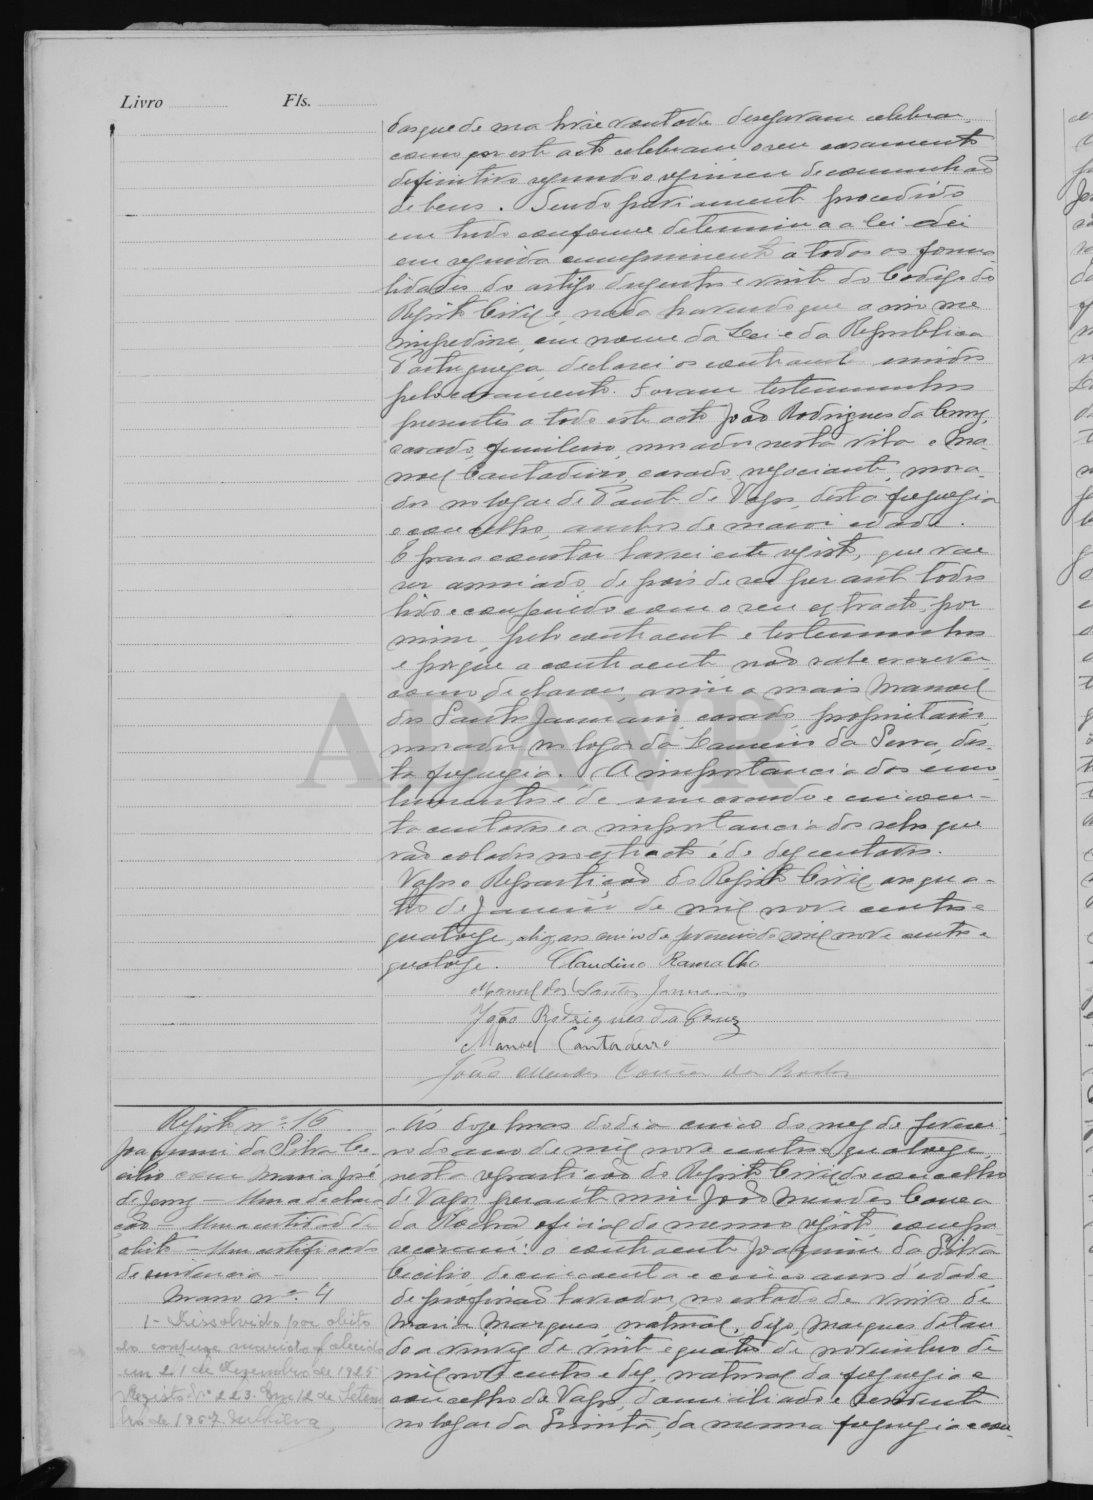 Livro Fls.
das que de sua livre vontade desejavam celebrar,
como por este acto celebram o seu casamento
definitivo segundo o regimen de communhão
de bens. Sendo previamente procedido
em tudo conforme determina a lei dei
em seguida cumprimento a todas as forma-
lidades do artigo duzentos e vinte do Codigo do
Registo Civil e, nada havendo que a isso me
impedisse, em nome da Lei e da Republica
Portugueza, declarei os contraentes unidos
pelo casamento. Foram testemunhas
presentes a todo este acto João Rodrigues da Cruz,
casado, funileiro, morador nesta vila e Ma-
noel Cantadeiro, casado, negociante, mora-
dor no logar de Ponte de Vagos, desta freguezia
e concelho, ambos de maior edade.
E para constar lavrei este registo, que vae
ser assinado, depois de ser perante todos
lido e conferido com o seu extracto, por
mim, pelo contraente e testemunhas
e porque a contraente não sabe escrever
como declarou, assina mais Manoel
dos Santos Januario, casado, proprietario,
morador no logar da Lameiro da Serra, des-
ta freguezia. A importancia dos emo-
lumentos é de um escudo e cincoen-
ta centavos e a importancia dos selos que
vão colados no extracto é de dez centavos.
Vagos e Repartição do Registo Civil, aos qua-
tro de Janeiro de mil nove centos e
quatorze, digo, aos cinco de fevereiro de mil nove centos e
quatorze. Claudino Ramalho
Manoel dos Santos Januario
João Rodrigues da Cruz
Manoel Cantadeiro
João Mendes Correia da Rocha
Registo nº 16
Joaquim da Silva Ce-
cilio com Maria José
de Jesuz — Uma declara-
ção — Uma certidão de
obito — Um certificado
de
Maço nº 4
1 - Dissolvido por obito
do conjuge marido falecido
em 21 de Dezembro de 1925
Registo nº 223. Em 12 de Setem
bro de 1967
Ás doze horas do dia cinco do mez de feverei-
ro do ano de mil nove centos e quatorze,
nesta repartição do Registo Civil do concelho
de Vagos perante mim João Mendes Correia
da Rocha, oficial do mesmo registo, compa-
receram: o contraente Joaquim da Silva
Cecilio, de cincoenta e cinco anos d'edade,
de profissão lavrador, no estado de viuvo de
Maria Marques, natural, digo, Marques
de vinte e quatro de novembro de
mil nove centos e dez, natural da freguezia e
concelho de Vagos, domiciliado e residente
no logar da Quintã, da mesma freguezia e con-
ADAVR